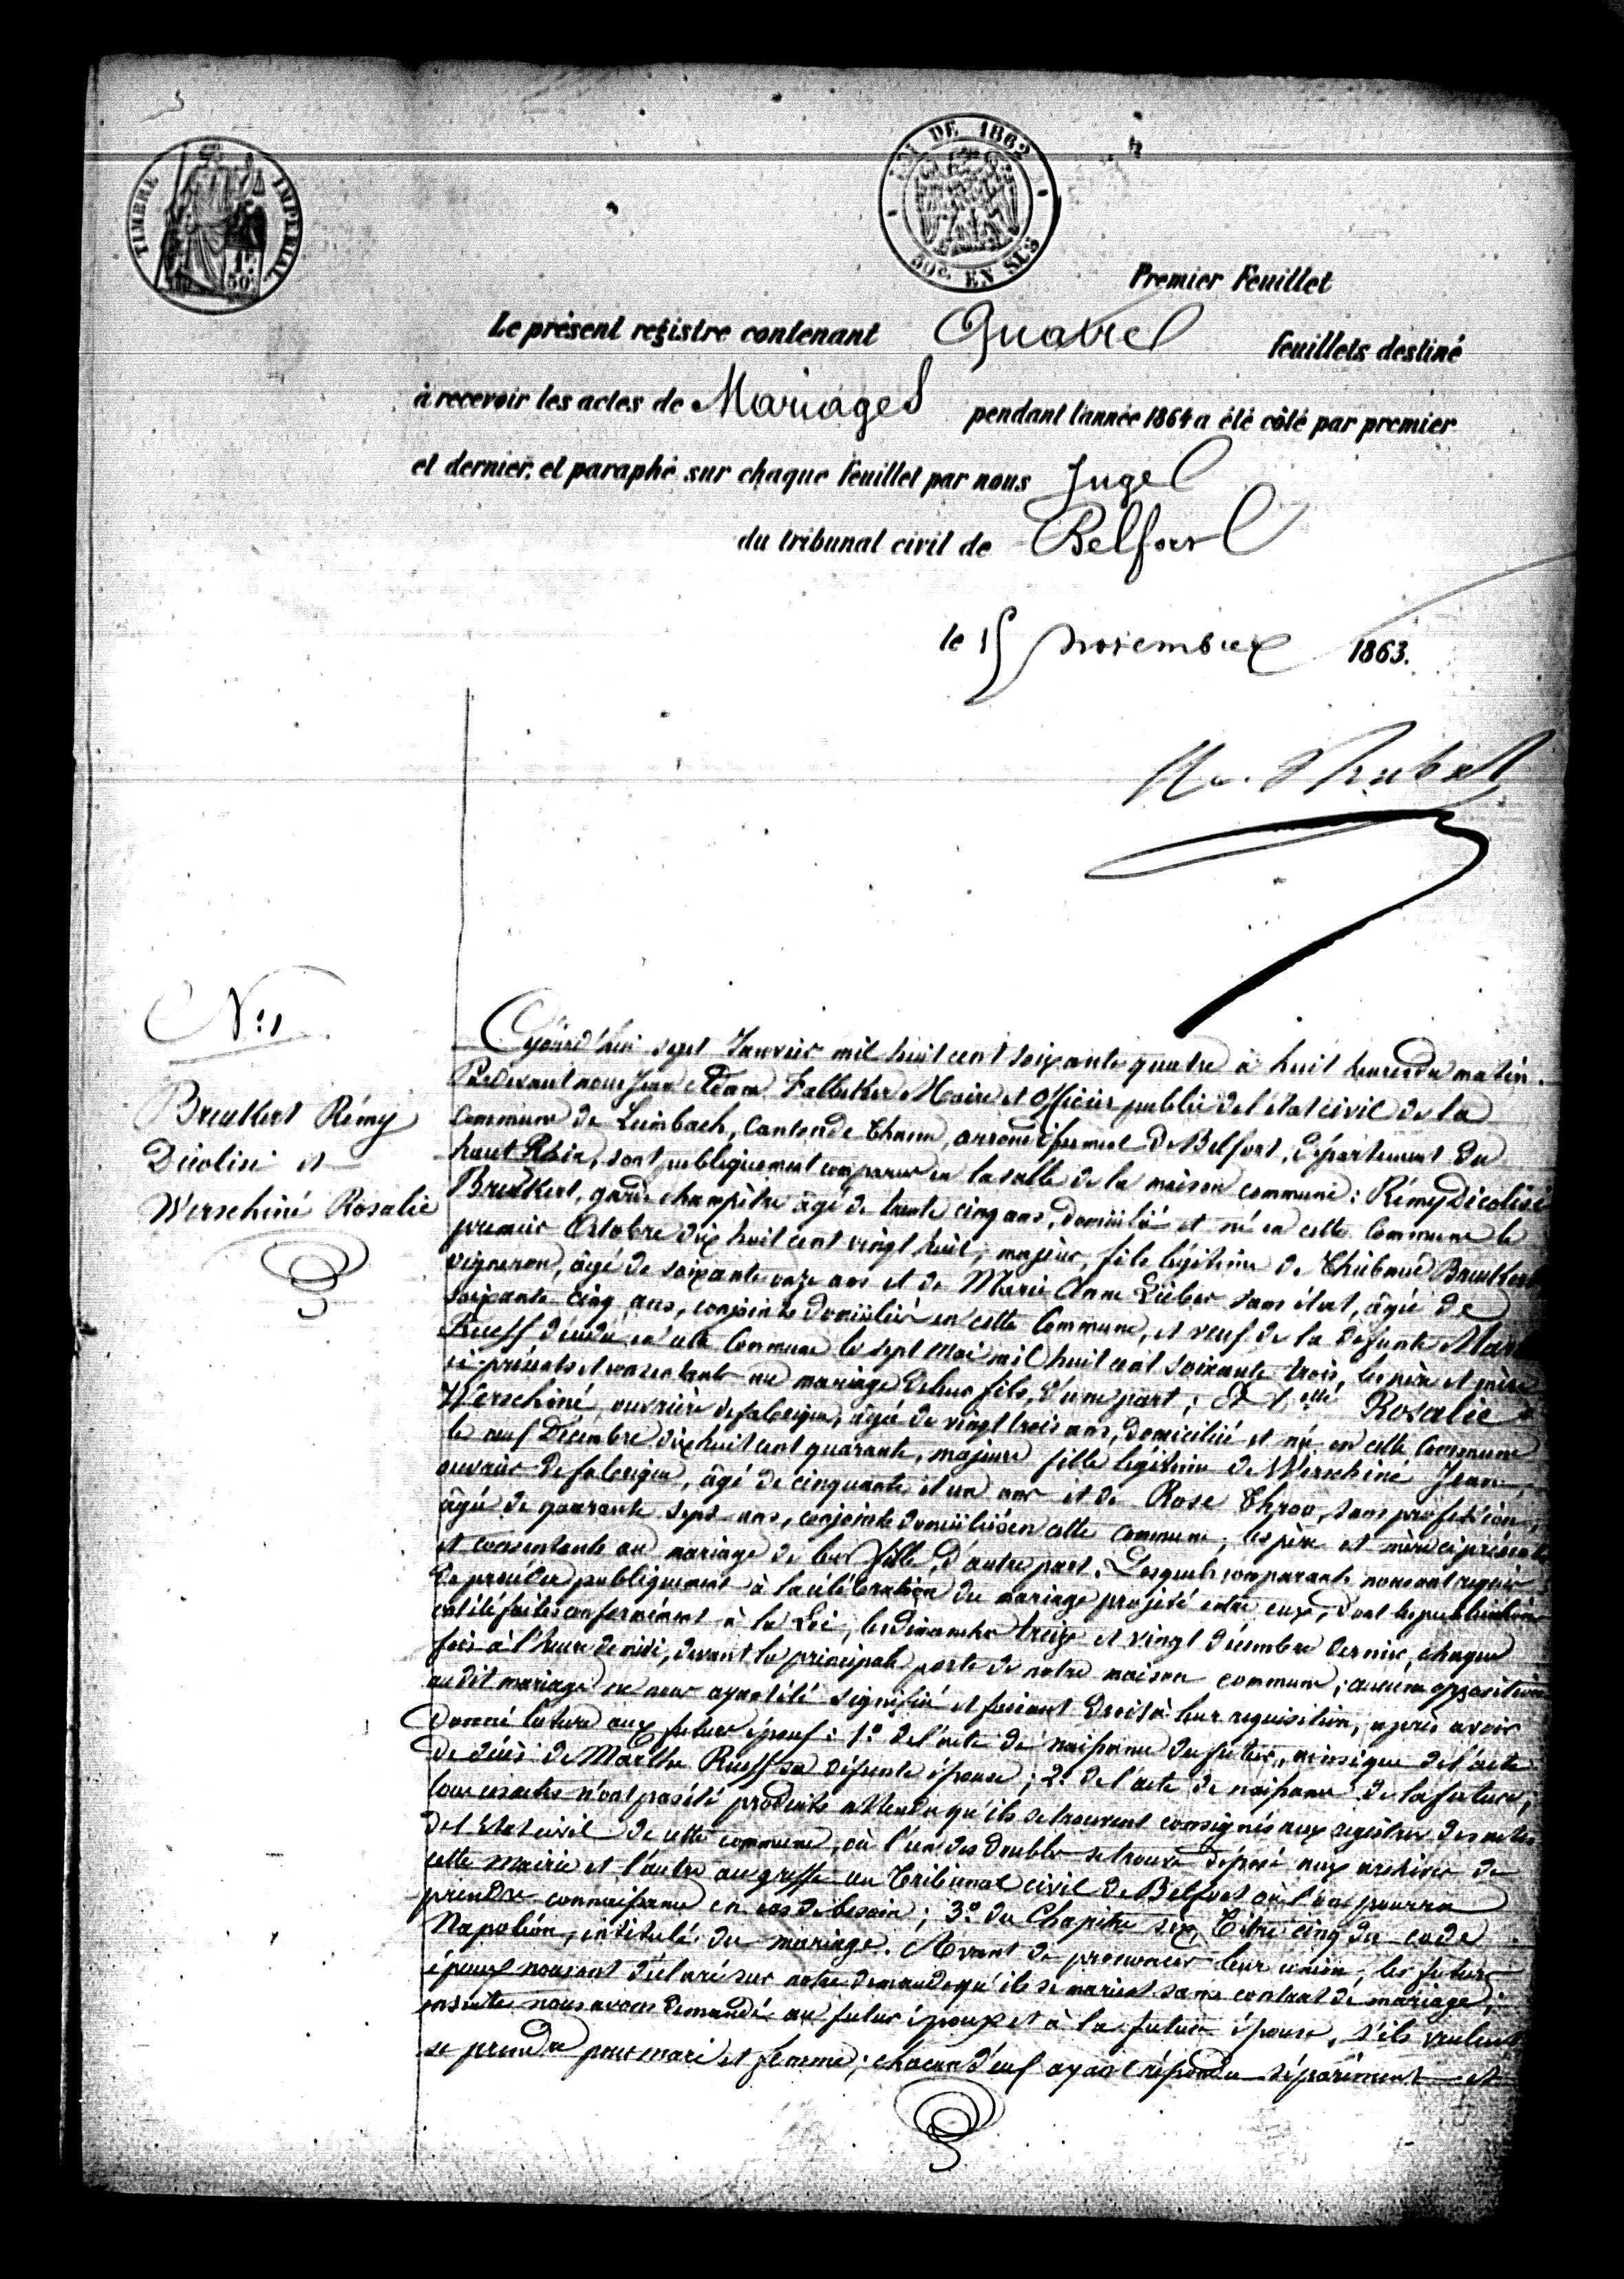 TIMBRE IMPERIAL
1F.
50c.
LOI DE 1862
50c. EN SUS
Premier Feuillet
Le présent registre contenant Quatre feuillets destiné
à recevoir les actes de Mariages pendant l'année 1864 a été côté par premier
et dernier, et paraphé sur chaque feuillet par nous Juge
du tribunal civil de Belfort
le 15 novembre 1863.
N° 1
Breukert Rémy
Dicolise et
Werschiné Rosalie
Cejourd'hui sept Janvier mil huit cent soixante quatre à huit heures du matin.
Pardevant nous Jean Adam Fallecker Maire et Officier public de l'état civil de la
Commune de Leimbach, Canton de Thann, arrondissement de Belfort, département du
haut Rhin, sont publiquement comparus en la salle de la maison commune : Rémy Dicolise
Breukert, garde champêtre âgé de trente cinq ans, domicilié et né en cette Commune le
premier Octobre dix huit cent vingt huit, majeur, fils légitime de Thiébaud Breukert
vigneron, âgé de soixante onze ans et de Marie Anne Lieber sans état, âgée de
soixante cinq ans, conjoints domiciliés en cette Commune, et veuf de la défunte
Rueff décédée en cette Commune le sept Mai mil huit cent soixante trois, les père et mère
ci présents et consentants au mariage de leur fils, d'une part ; Et Delle Rosalie
Werschiné, ouvrière de fabrique, âgée de vingt trois ans, domiciliée et né en cette Commune
le neuf Décembre dix huit cent quarante, majeure fille légitime de Werschiné Jean,
ouvrier de fabrique, âgé de cinquante et un ans et de Rose Throo, sans profession,
âgée de quarante sept ans, conjoints domiciliés en cette commune, les père et mère ci présents
et consentants au mariage de leur fille, d'autre part. Lesquels comparants nous ont requis
de procéder publiquement à la célébration du mariage projeté entre eux, dont les publications
ont été faites conformément à la Loi, les dimanches treize et vingt décembre dernier, chaque
fois à l'heure de midi, devant la principale porte de notre maison commune ; aucune opposition
au dit mariage ne nous ayant été signifiée et faisant droit à leur requisition, après avoir
donné lecture aux futurs époux : 1° de l'acte de naissance du futur, ainsi que de l'acte
de décès de Marthe Rueff sa défunte épouse ; 2° de l'acte de naissance de la future ;
tous ces actes n'ont pas été produits attendu qu'ils se trouvent consignés aux registres des actes
de l'Etat civil de cette commune, où l'un des doubles se trouve déposé aux archives de
cette mairie et l'autre au greffe au Tribunal civil de Belfort où l'on pourra
prendre connaissance en cas de besoin ; 3° du Chapitre six, Titre cinq du code
Napoléon, intitulé du mariage. Avant de prononcer leur union, les futurs
époux nous ont déclaré sur notre demande qu'ils se marient sans contrat de mariage ;
ensuite nous avons demandé au futur époux et à la future épouse, s'ils veulent
se prendre pour mari et femme ; chacun d'eux ayant répondu séparément et